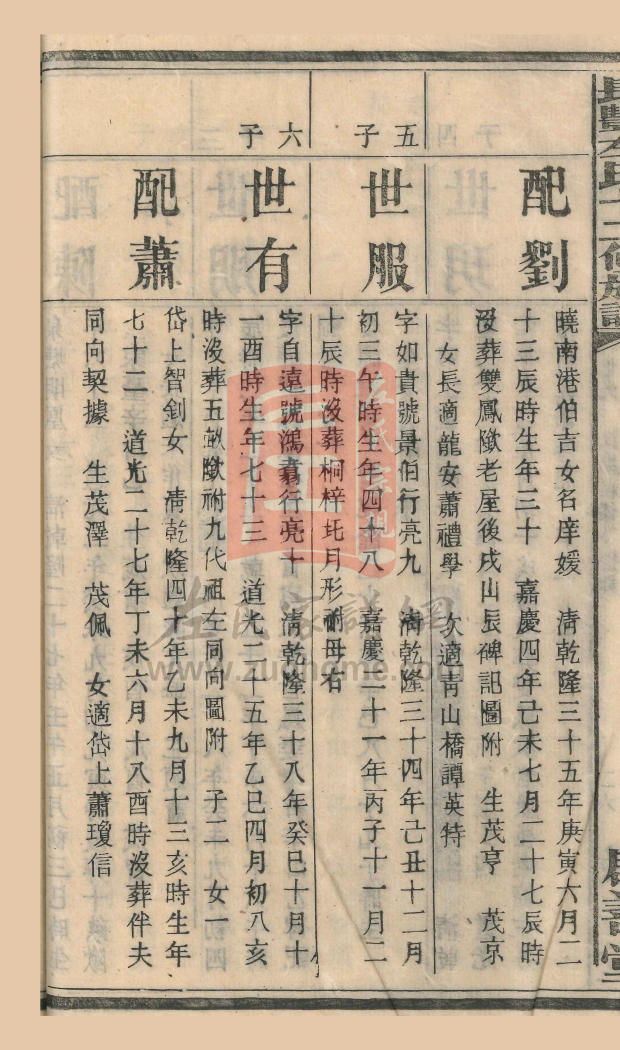 配劉
曉南港伯吉女名庠媛 清乾隆三十五年庚寅六月二
十三辰時生年三十 嘉慶四年己未七月二十七辰時
沒葬雙鳳墩老屋後戌山辰碑記圖附 生茂亨 茂京
女長適龍安蕭禮學 次適青山橋譚英特
五子
世服
字如貴號景伯行亮九 清乾隆三十四年己丑十二月
初三午時生年四十八 嘉慶二十一年丙子十一月二
十辰時沒葬桐梓坑月形祔母右
六子
世有
字自遠號鴻翥行亮十 清乾隆三十八年癸巳十月十
一酉時生年七十三 道光二十五年乙巳四月初八亥
時沒葬五畝墩祔九代祖左同向圖附 子二 女一
配蕭
岱上智釗女 清乾隆四十年乙未九月十三亥時生年
七十二 道光二十七年丁未六月十八酉時沒葬伴夫
同向契據 生茂澤 茂佩 女適岱上蕭瓊信
左氏家譜網
www.zuqhome.com